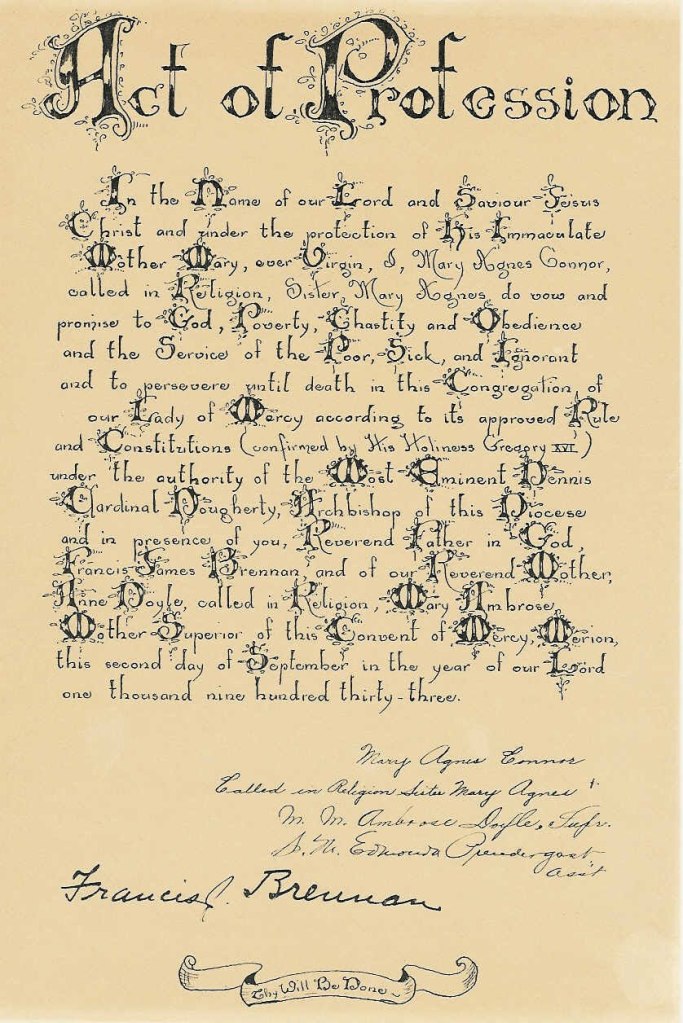 Act of Profession
In the Name of our Lord and Saviour Jesus
Christ and under the protection of His Immaculate
Mother Mary, ever Virgin, I, Mary Agnes Connor,
called in Religion, Sister Mary Agnes do vow and
promise to God, Poverty, Chastity and Obedience
and the Service of the Poor, Sick, and Ignorant
and to persevere until death in this Congregation of
our Lady of Mercy according to it's approved Rule
and Constitutions (confirmed by His Holiness Gregory XVI)
under the authority of the Most Eminent Dennis
Cardinal Dougherty, Archbishop of this Diocese
and in presence of you, Reverend Father in God,
Francis James Brennan, and of our Reverend Mother,
Anne Doyle, called in Religion, Mary Ambrose,
Mother Superior of this Convent of Mercy, Merion,
this second day of September in the year of our Lord
one thousand nine hundred thirty-three.
Mary Agnes Connor
Called in Religion Sister Mary Agnes
M. M. Ambrose Doyle, Supr.
S. M. Edmonda Prendergast
Asst
Francis J. Brennan
Thy Will Be Done